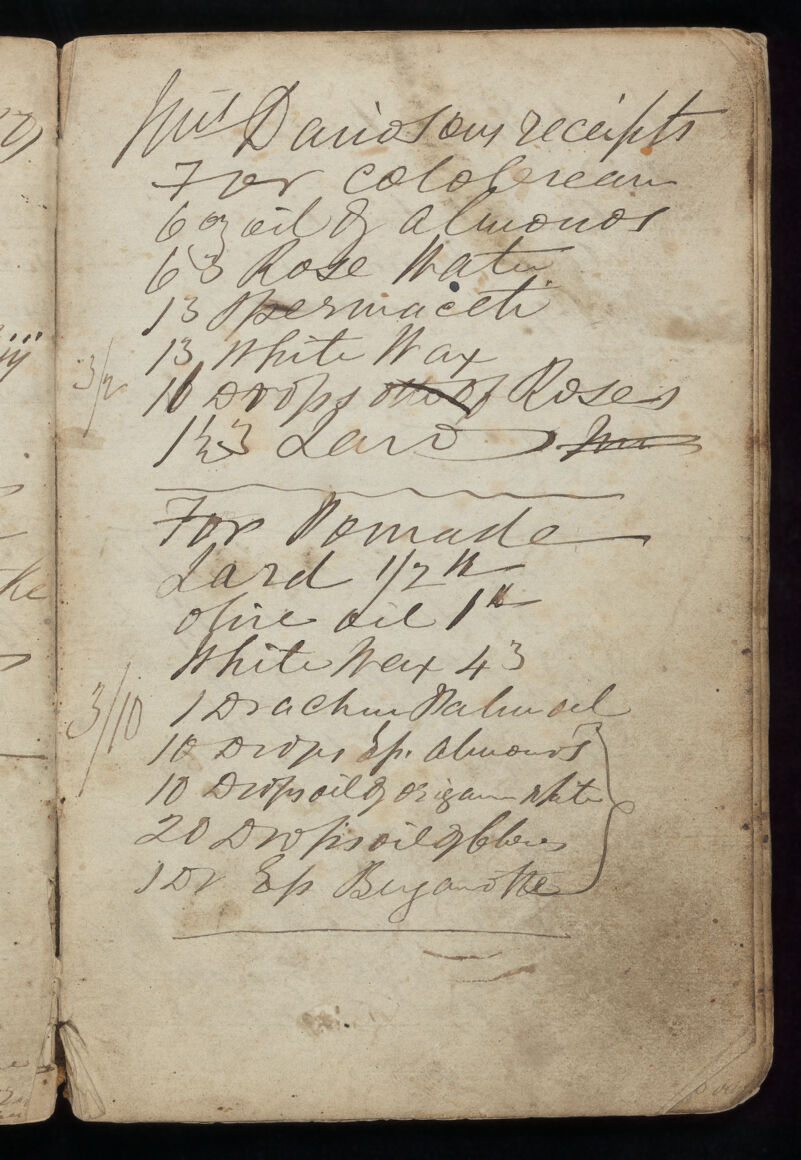 Mrs Davidsons receipts
For coldcream
6 ℥ oil of almonds
6 ℥ Rose Water
1 ℥ Spermaceti
1 ℥ White Wax
3/2
10 Drops of Roses
1½ ℥ Lard
For Pomade
Lard 1/2 ℔
Olive oil 1 ℔
White Wax 4 ℥
3/10
1 Drachm Palm oil
10 Drops Es. almonds
10 Drops oil of origanum white
20 Drops oil of Cloves
1 Dr Es Bergamotte